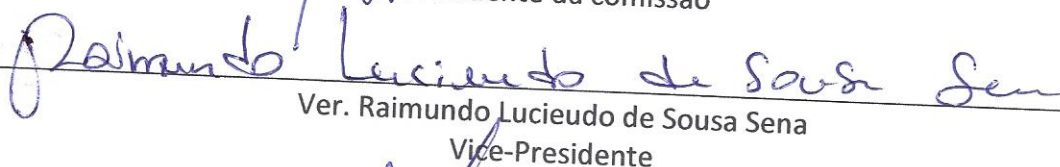 da comissão
Raimundo Lucieudo de Sousa Sena
Ver. Raimundo Lucieudo de Sousa Sena
Vice-Presidente